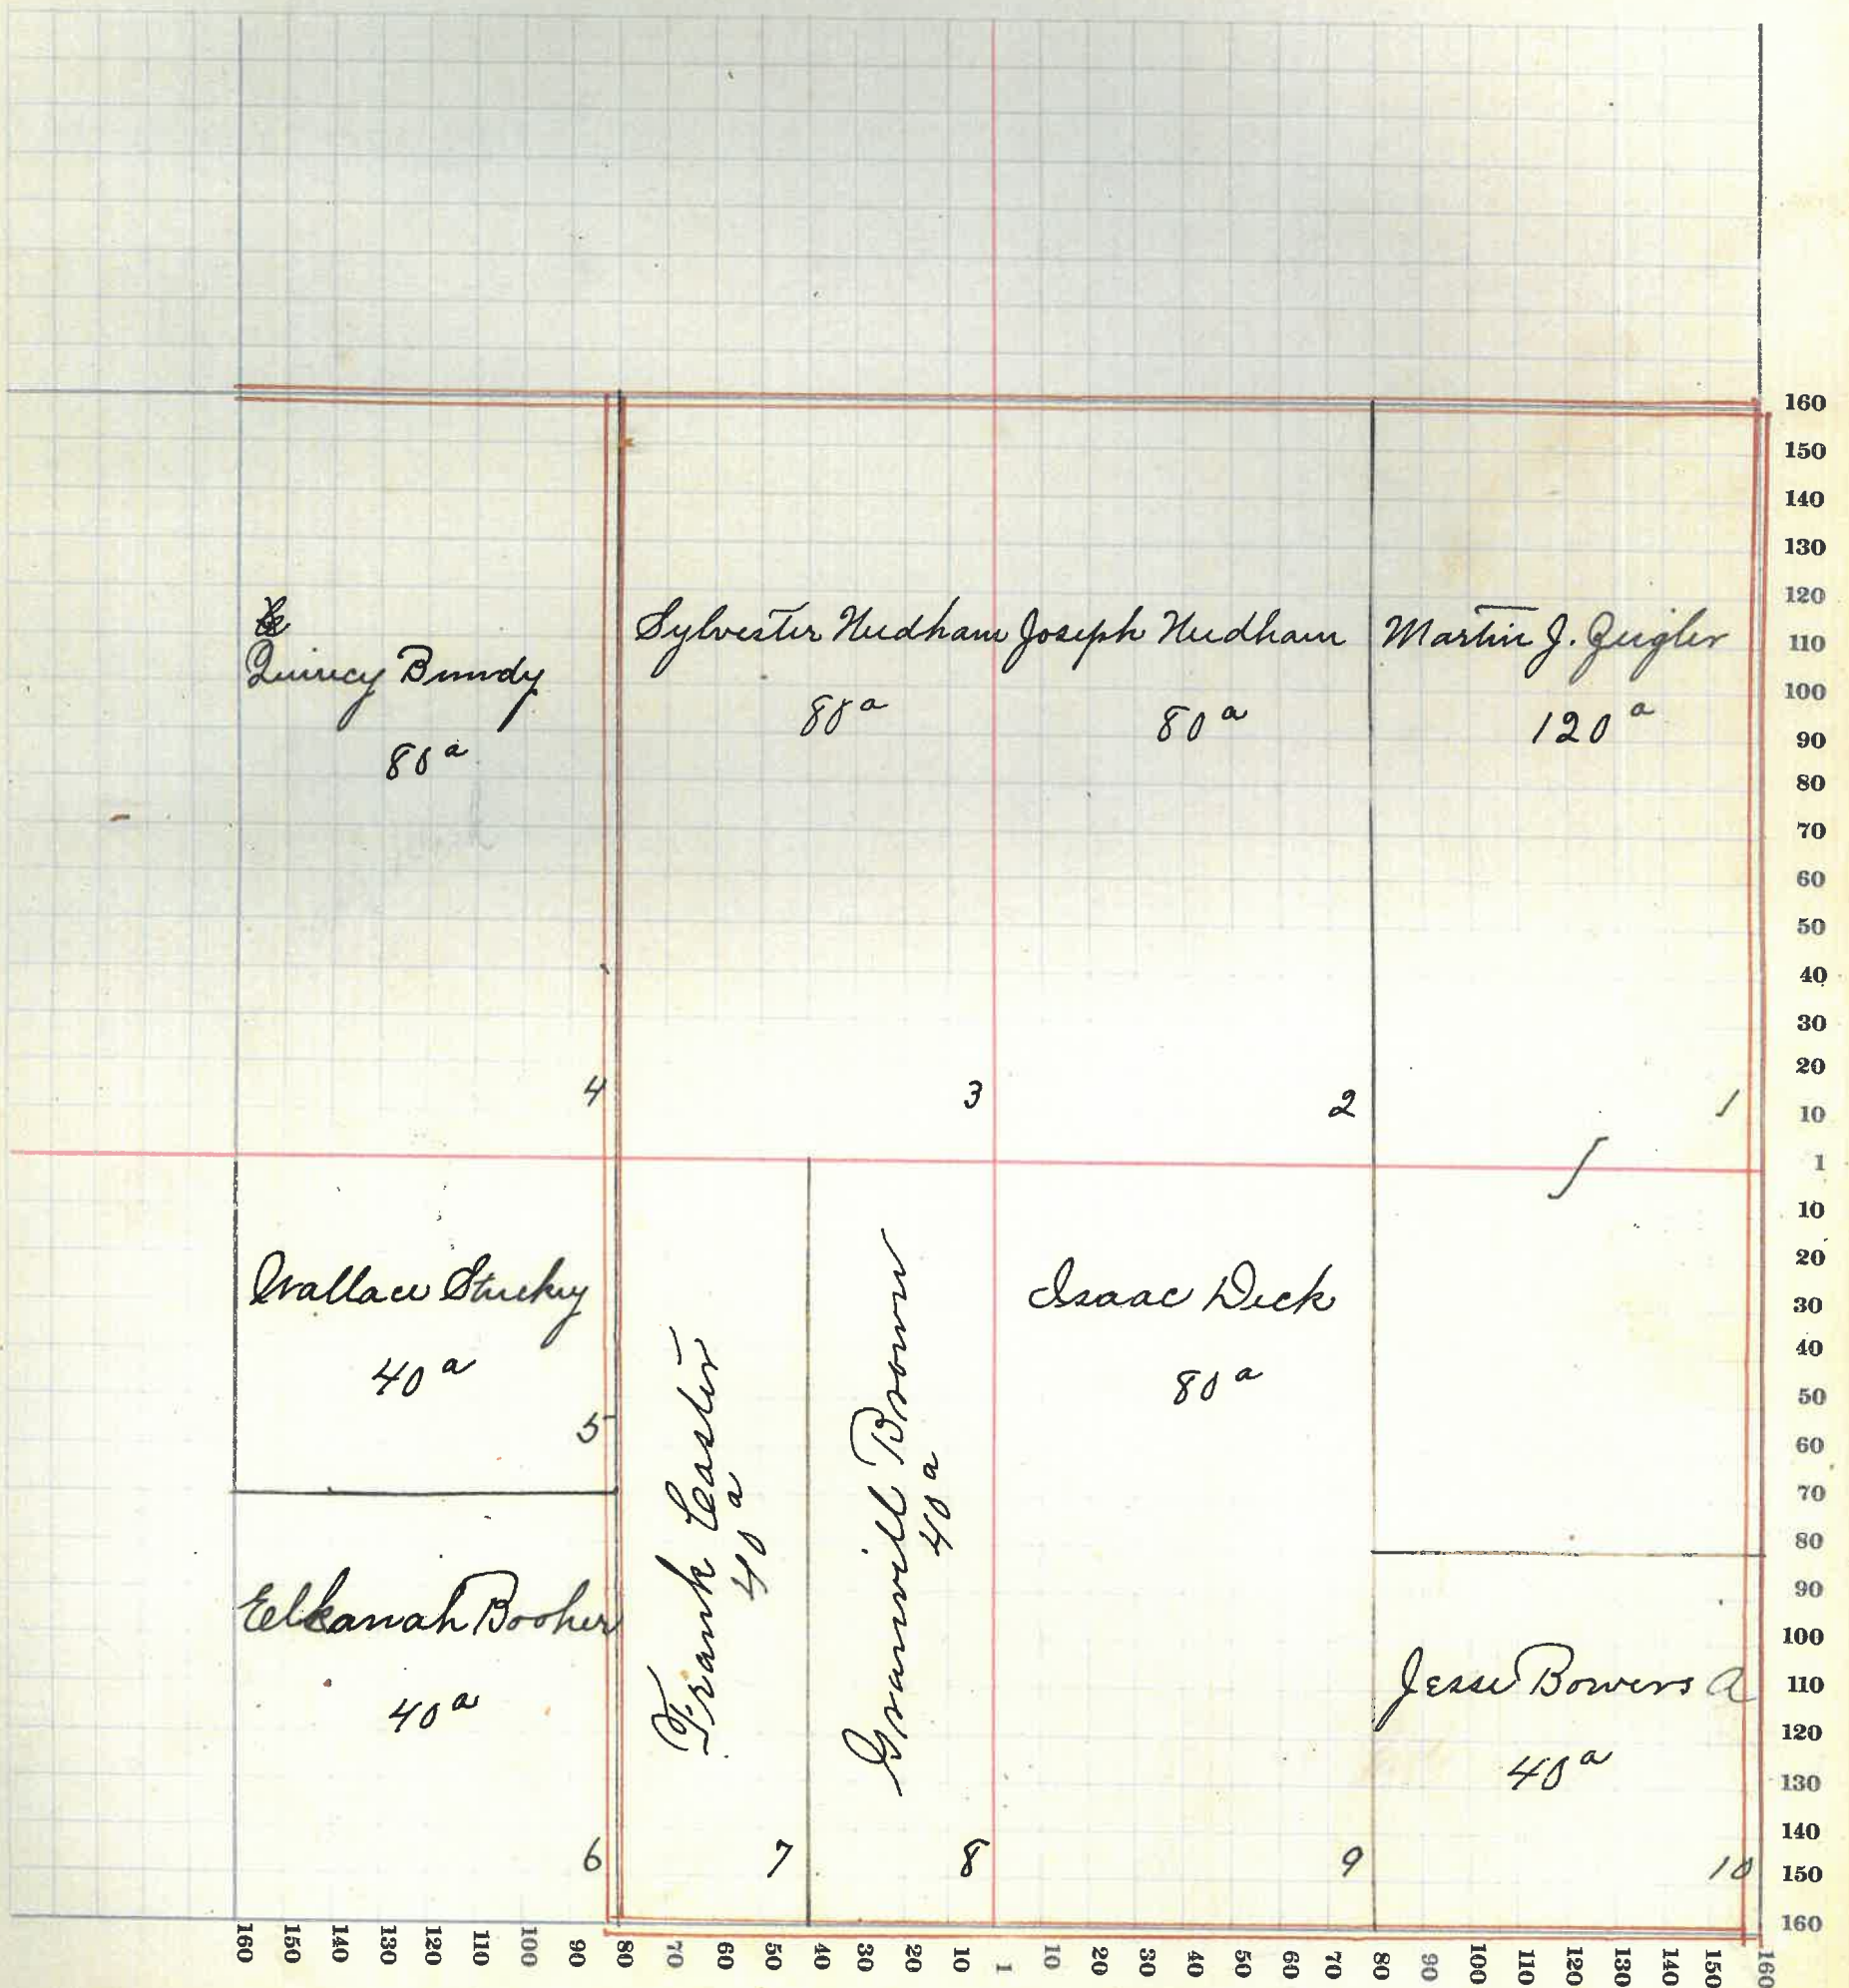 Quincy Bundy
80 a
4
Sylvester Needham
80 a
3
Joseph Needham
80 a
2
Martin J. Zeigler
120 a
1
Wallace Stuckey
40 a
5
Elkanah Booher
40 a
6
Frank Caster
40 a
7
Granvill Brown
40 a
8
Isaac Deck
80 a
9
Jesse Bowers a
40 a
10
160
150
140
130
120
110
100
90
80
70
60
50
40
30
20
10
1
10
20
30
40
50
60
70
80
90
100
110
120
130
140
150
160
160 150 140 130 120 110 100 90 80 70 60 50 40 30 20 10 1 10 20 30 40 50 60 70 80 90 100 110 120 130 140 150 160